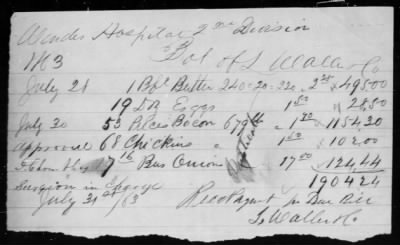 Winder Hospital 2nd Division
1863 Bot of S Waller & Co
July 28 1 Bbl Butter 240-20-220 2 25 495.00
19 Dz Eggs 1 50 28.50
July 30 53 Pieces Bacon 679 lbs 1 70 1154.30
Approved 68 Chickens 1 50 102.00
7 16 Bus Onions 17 00 124.44
Surgeon in Charge 1904 24
July 31st /63 Recd Payt per Due Bill
S Waller & Co